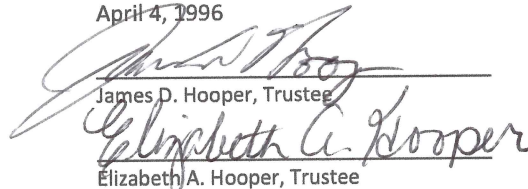 April 4, 1996
James D. Hooper
James D. Hooper, Trustee
Elizabeth A. Hooper
Elizabeth A. Hooper, Trustee